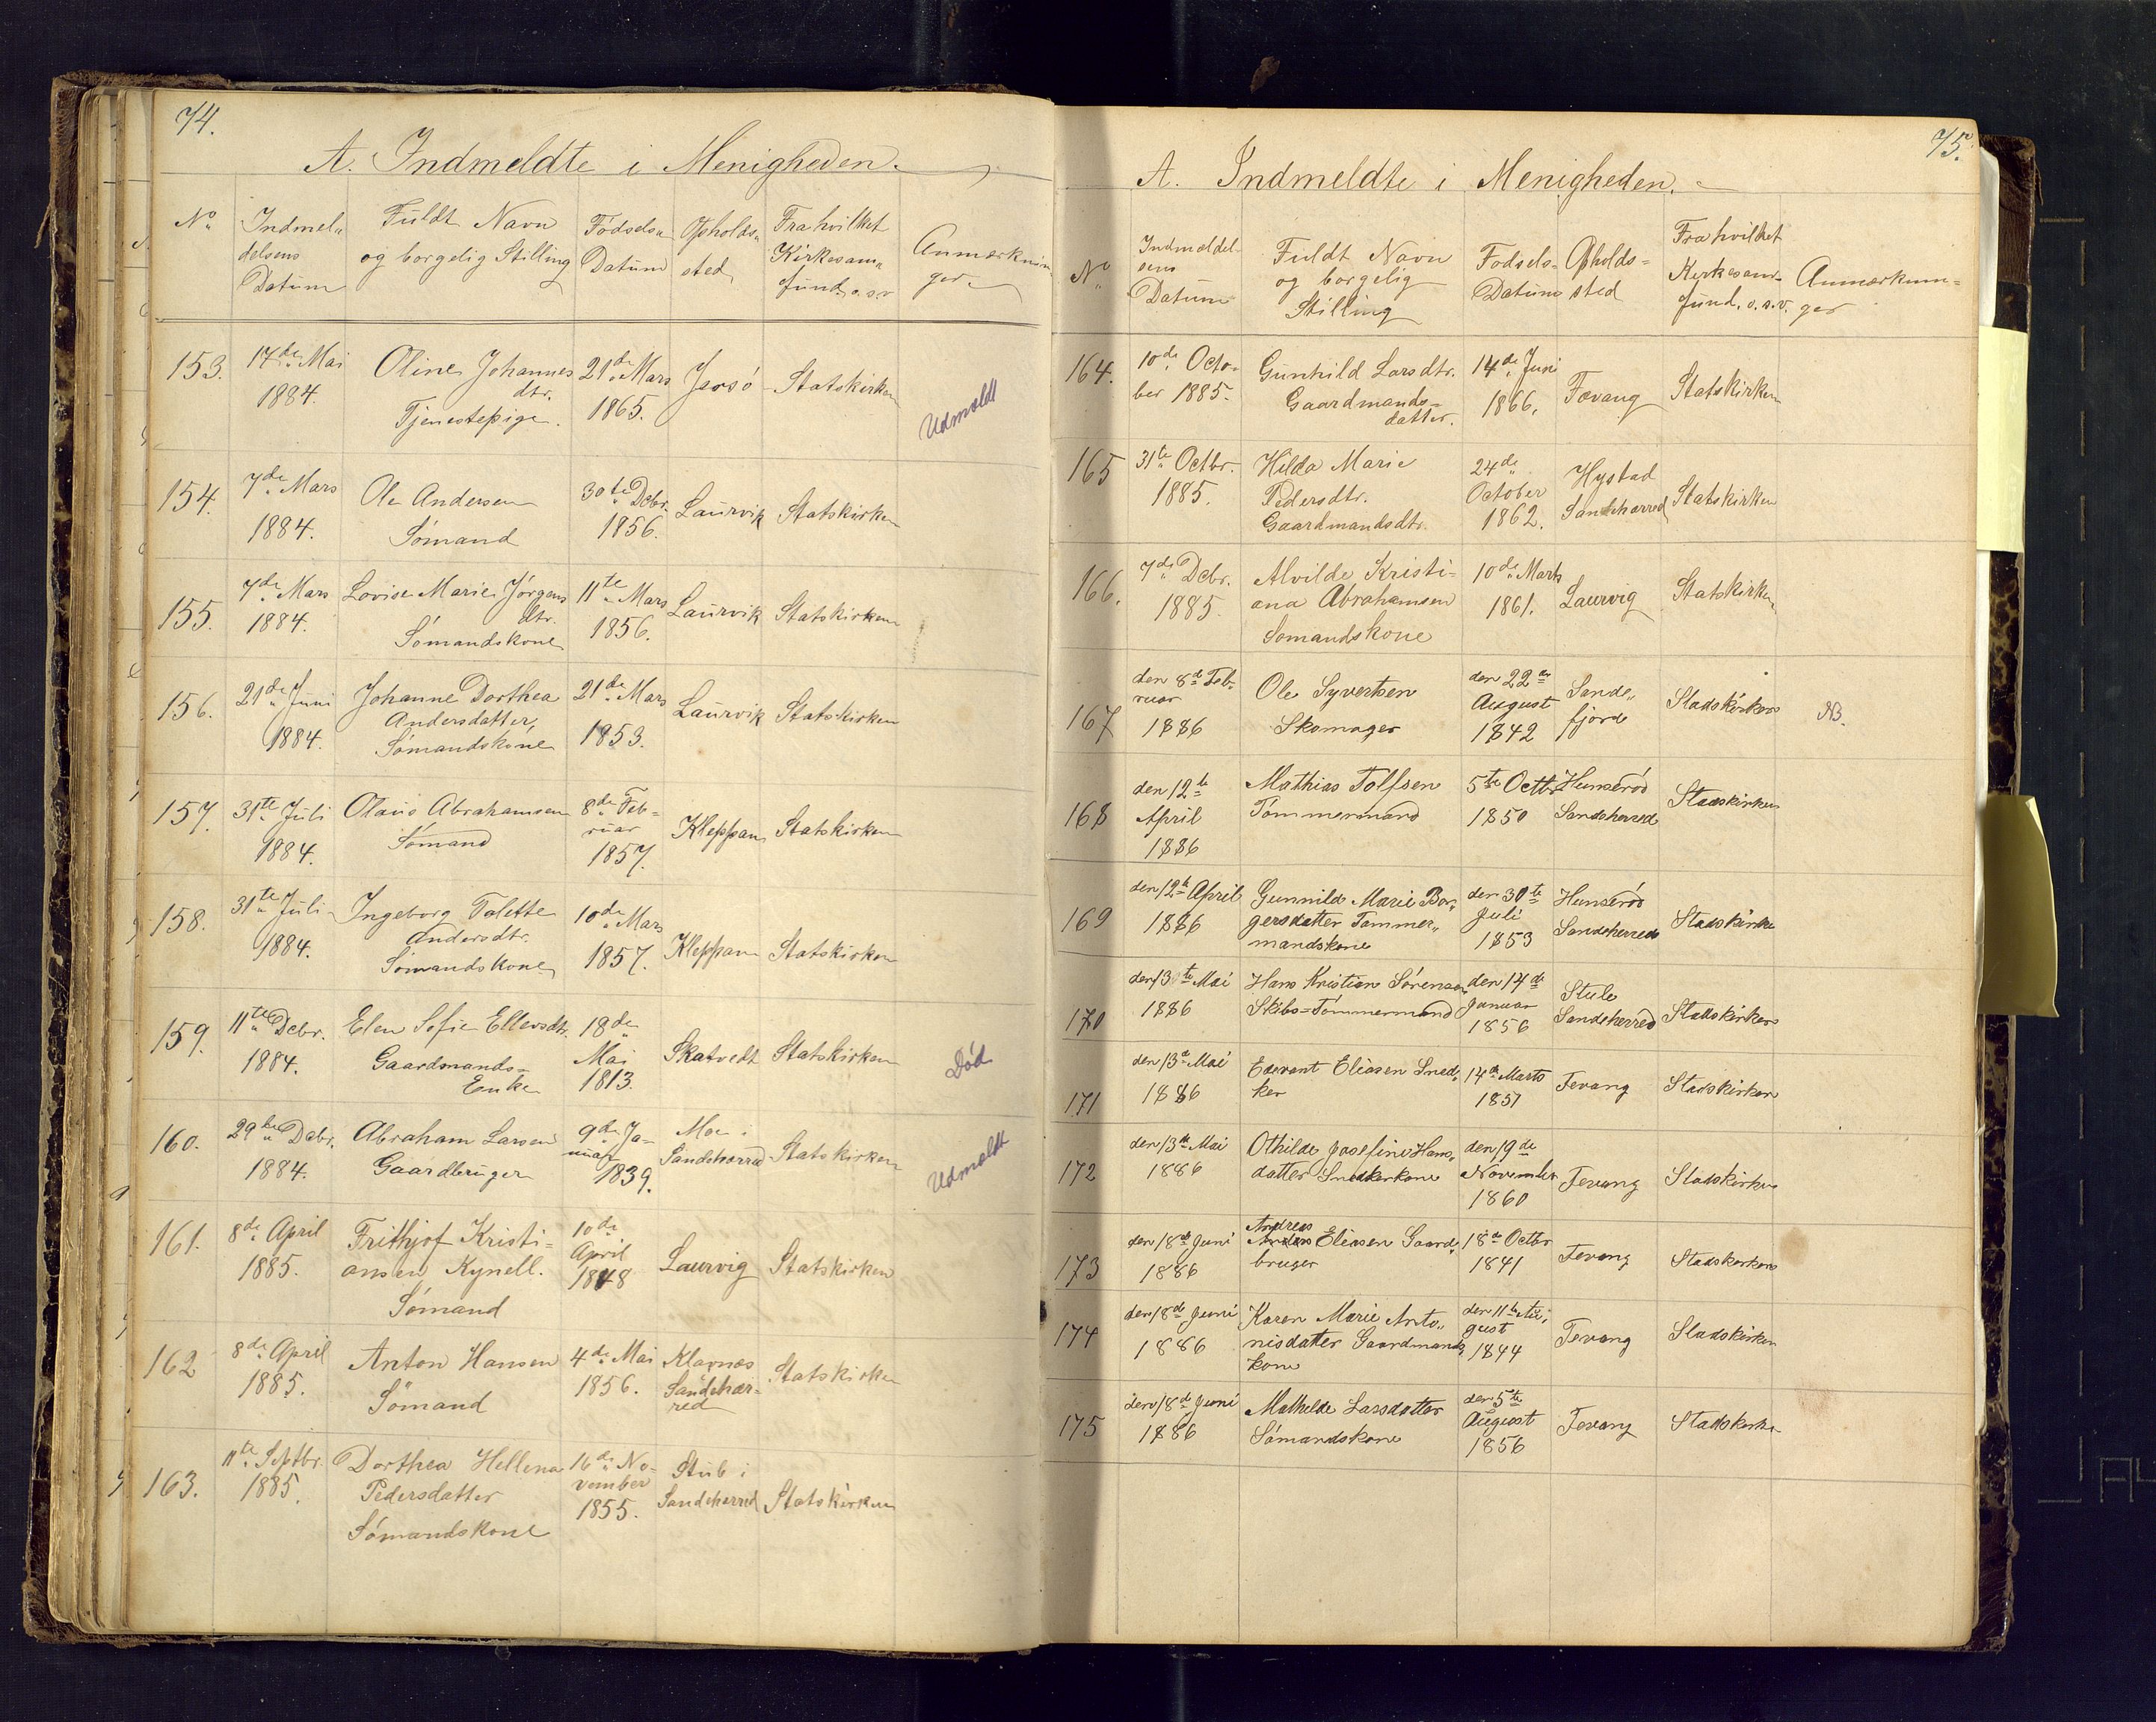 74.
A. Indmeldte i Menigheden.
No Indmel- delsens Datum
Fuldt Navn og borgelig Stilling
Fødsels- Datum
Opholds- sted
Fra hvilket Kirkesam- fund o.s.v.
Anmærknin- ger.
153. 17de Mai 1884. Oline Johannes dtr. Tjenestepige. 21de Mars 1865. Jersø Statskirken Udmeldt
154. 7de Mars 1884. Ole Andersen Sömand 30te Dcbr. 1856. Laurvik Statskirken
155. 7de Mars 1884. Lovise Marie Jörgens dtr. Sömandskone 11te Mars 1856. Laurvik Statskirken
156. 21de Juni 1884. Johanne Dorthea Andersdatter, Sömandskone 21de Mars 1853. Laurvik Statskirken
157. 31te Juli 1884. Olaus Abrahamsen Sömand 8de Feb- ruar 1857. Kleppan Statskirken
158. 31te Juli 1884. Ingeborg Tolette Andersdtr. Sömandskone 10de Mars 1857. Kleppan Statskirken
159. 11te Dcbr. 1884. Elen Sofie Ellevsdtr. Gaardmands- Enke 18de Mai 1813. Skatvedt Statskirken Död
160. 29de Dcbr. 1884. Abraham Larsen Gaardbruger 9de Ja- nuar 1839. Moe i Sandeherred Statskirken Udmeldt
161. 8de April 1885. Frithjof Kristi- ansen Kynell. Sömand 10de April 1848 Laurvig Statskirken
162 8de April 1885. Anton Hansen Sömand 4de Mai 1856. Klavnæs Sandeher- red Statskirken
163. 11te Septbr. 1885. Dorthea Hellena Pedersdatter Sömandskone 16de No- vember 1855. Stub i Sandeherred Statskirken
75.
A. Indmeldte i Menigheden.
No Indmeldel- sens Datum
Fuldt Navn og borgelig Stilling
Fødsels- Datum
Opholds- sted
Fra hvilket Kirkesam- fund, o.s.v.
Anmærknin- ger
164. 10de Octo- ber 1885. Gunhild Larsdtr. Gaardmands- datter. 14de Juni 1866. Fevang Statskirken
165 31te Octbr. 1885. Hilda Marie Pedersdtr. Gaardmandsdtr. 24de October 1862. Hystad Sandeherred Statskirken
166. 7de Dcbr. 1885 Alvilde Kristi- ana Abrahamsen Sömandskone 10de Marts 1861. Laurvig Statskirken
167 den 8de Feb- ruar 1886 Ole Syvertsen Skomager den 22de August 1842 Sande- fjord Stadskirken NB.
168 den 12te April 1886 Mathias Tolfsen Tömmermand 5te Octbr 1850 Hunseröd Sandeherred Stadskirken
169 den 12te April 1886 Gunnild Marie Bor- gersdatter Tømmer- mandskone den 30te Juli 1853 Hunseröd Sandeherred Stadskirke
170 den 13te Mai 1886 Hans Kristian Sörensen Skibs-Tömmermand den 14de Januar 1856 Stub Sandeherred Stadskirken
171 den 13de Mai 1886 Edevant Eliasen Sned- ker 14de Marts 1851 Fevang Stadskirken
172 den 13de Mai 1886 Othilde Josefine Hans- datter Snedkerkone den 19de November 1860 Fevang Stadskirken
173 den 18de Juni 1886 Andreas Eliasen Gaard- bruger 18de Octbr 1841 Fevang Stadskirken
174 den 18de Juni 1886 Karen Marie Anto- nisdatter Gaardmands kone den 11te Au- gust 1844 Fevang Stadskirken
175 den 18de Juni 1886 Mathelde Larsdatter Sömandskone den 5te August 1856 Fevang Stadskirke